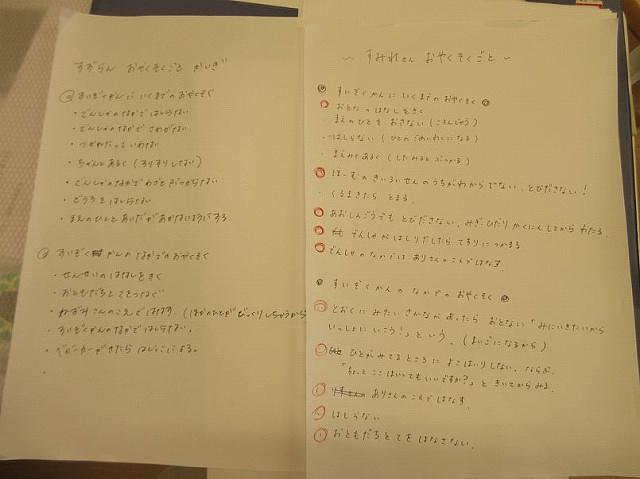 すずらん おやくそくごと かいぎ
すいぞくかんに いくまでの おやくそく
・でんしゃのなかで はしらない
・でんしゃのなかで さわがない
・つかれたって いわない
・ちゃんとあるく (すりすりしない)
・でんしゃのなかで わざと ぶつからない
・どうろを はしらない
・まえのひとと あいだが あかないようにする
すいぞくかんの なかでの おやくそく
・せんせいの はなしを きく
・おともだちと てをつなぐ
・ねずみさんのこえで はなす。(ほかのひとが びっくりしちゃうから
・すいぞくかんのなかで はしらない。
・ベビーカーがきたら はじっこによる。
〜 すみれさん おやくそくごと 〜
◎ すいぞくかんに いくまでの おやくそく ◎
おとなの はなしを きく
・まえのひとを おさない (ことんじゅう)
・はしらない (ひとの ごめいわくになる)
・まえみて あるく (したみると ぶつかる)
ほーむの きいろいせんの うちがわからでない、とびださない!
・くるまきたら とまる
あおしんごうでも とびださない、みぎ・ひだり かくにんしてから わたる。
でんしゃが はしりだしたら てすりに つかまる
でんしゃの なかでは ありさんの こえで はなす
◎ すいぞくかんの なかでの おやくそく ◎
とおくに みたい さかなが あったら おとなに「みにいきたいから
いっしょに いこう!」という。(まいごになるから)
ひとが みてるところに よこはいりしない。ならぶ。
「ちょっと ここ はいっても いいですか?」と きいてから みる。
ありさんの こえで はなす
はしらない
おともだちと てを はなさない。